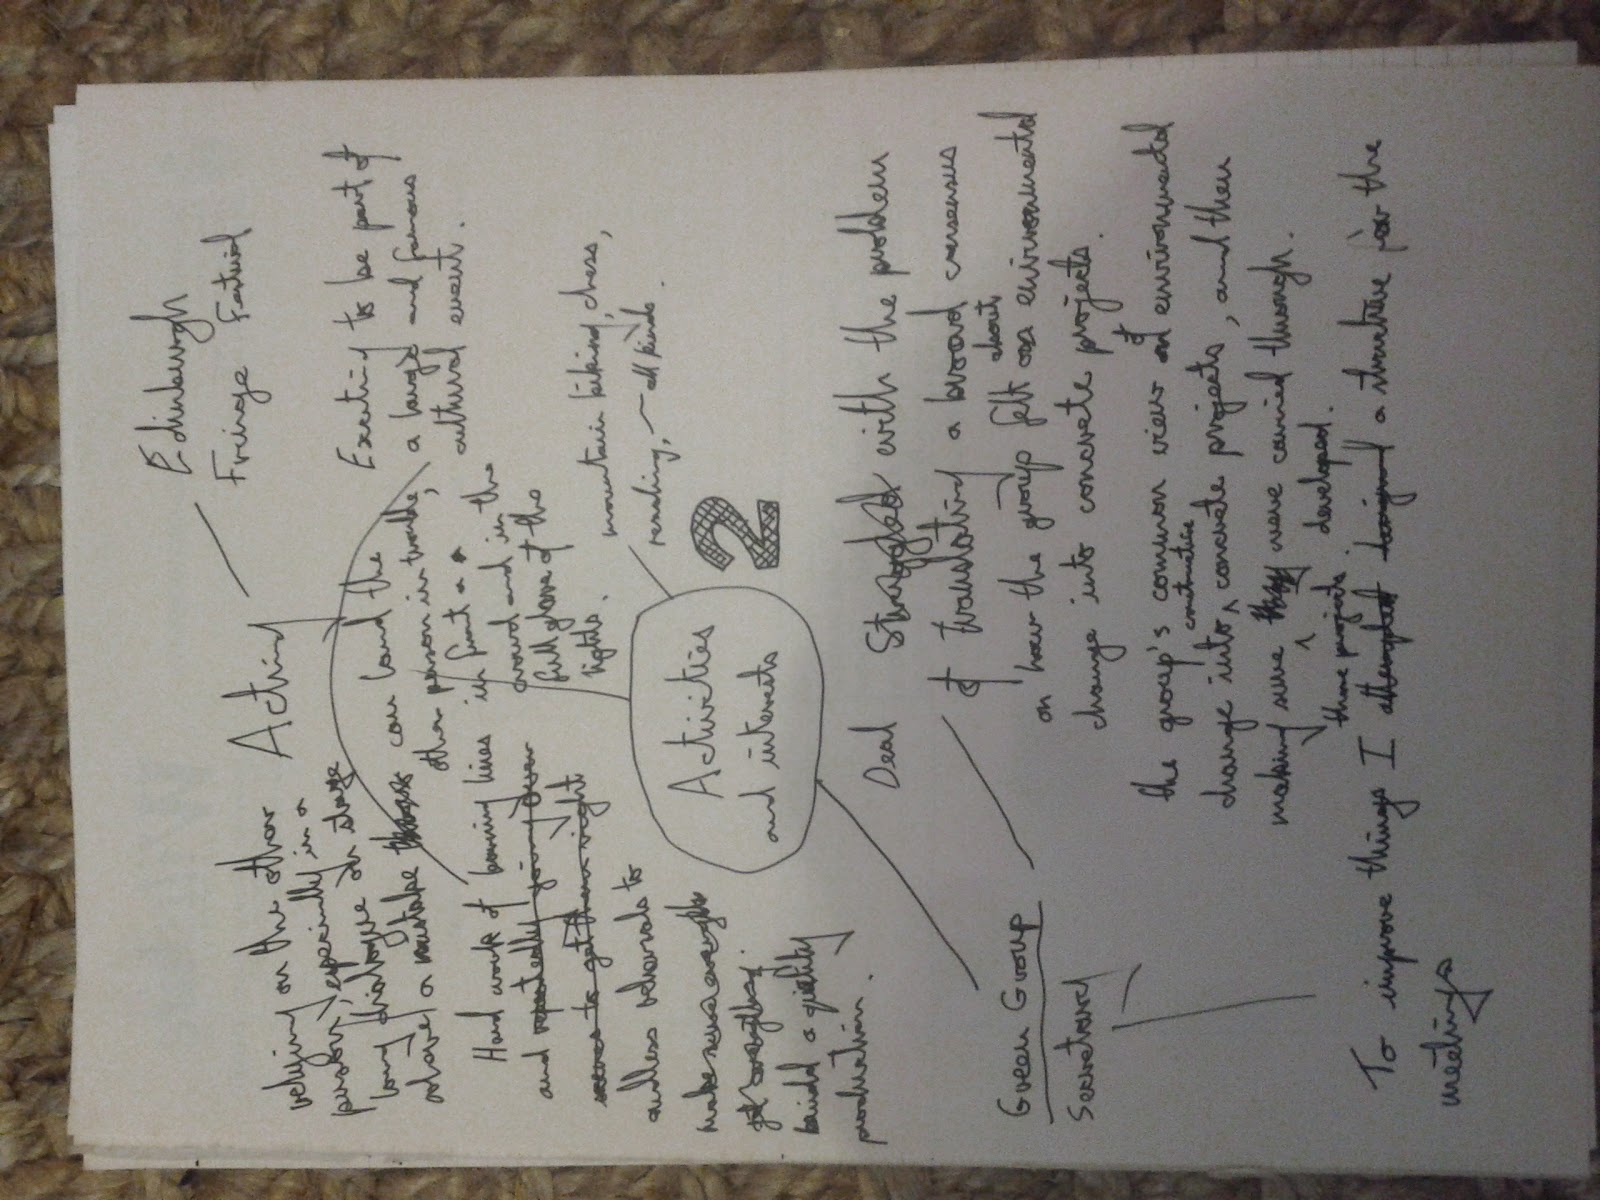 Edinburgh
Fringe Festival
Acting
Exciting to be part of
a large and famous
cultural event.
relying on the other
person, especially in a
long dialogue on stage
where a mistake can land the
other person in trouble,
in front of a
crowd and in the
full glare of the
lights.
Hard work of learning lines
and repeatedly going over
scenes to get them right
endless rehearsals to
make sure enough
get everything
build a quality
production.
mountain biking, chess,
reading, all kinds.
Activities
and interests
2
Deal Struggled with the problem
of translating a broad consensus
on how the group felt on about environmental
change into concrete projects.
the group's common view of environmental
change into constructive concrete projects, and then
making sure they were carried through.
those projects developed.
Green Group
Secretary
To improve things I attempted a structure for the
meetings